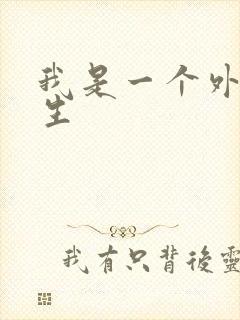 我是一个外
生
我有只背後靈